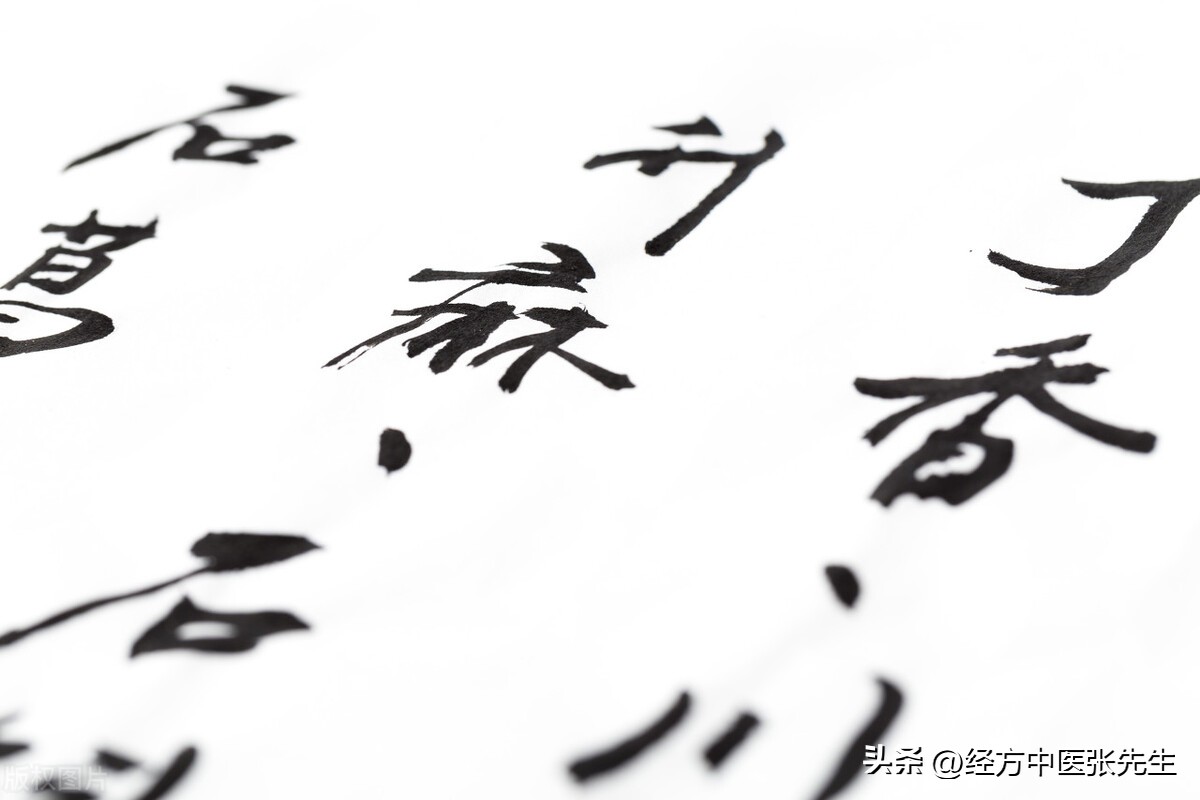 丁香、川
升麻、石
石膏
头条 @经方中医张先生
版权图片